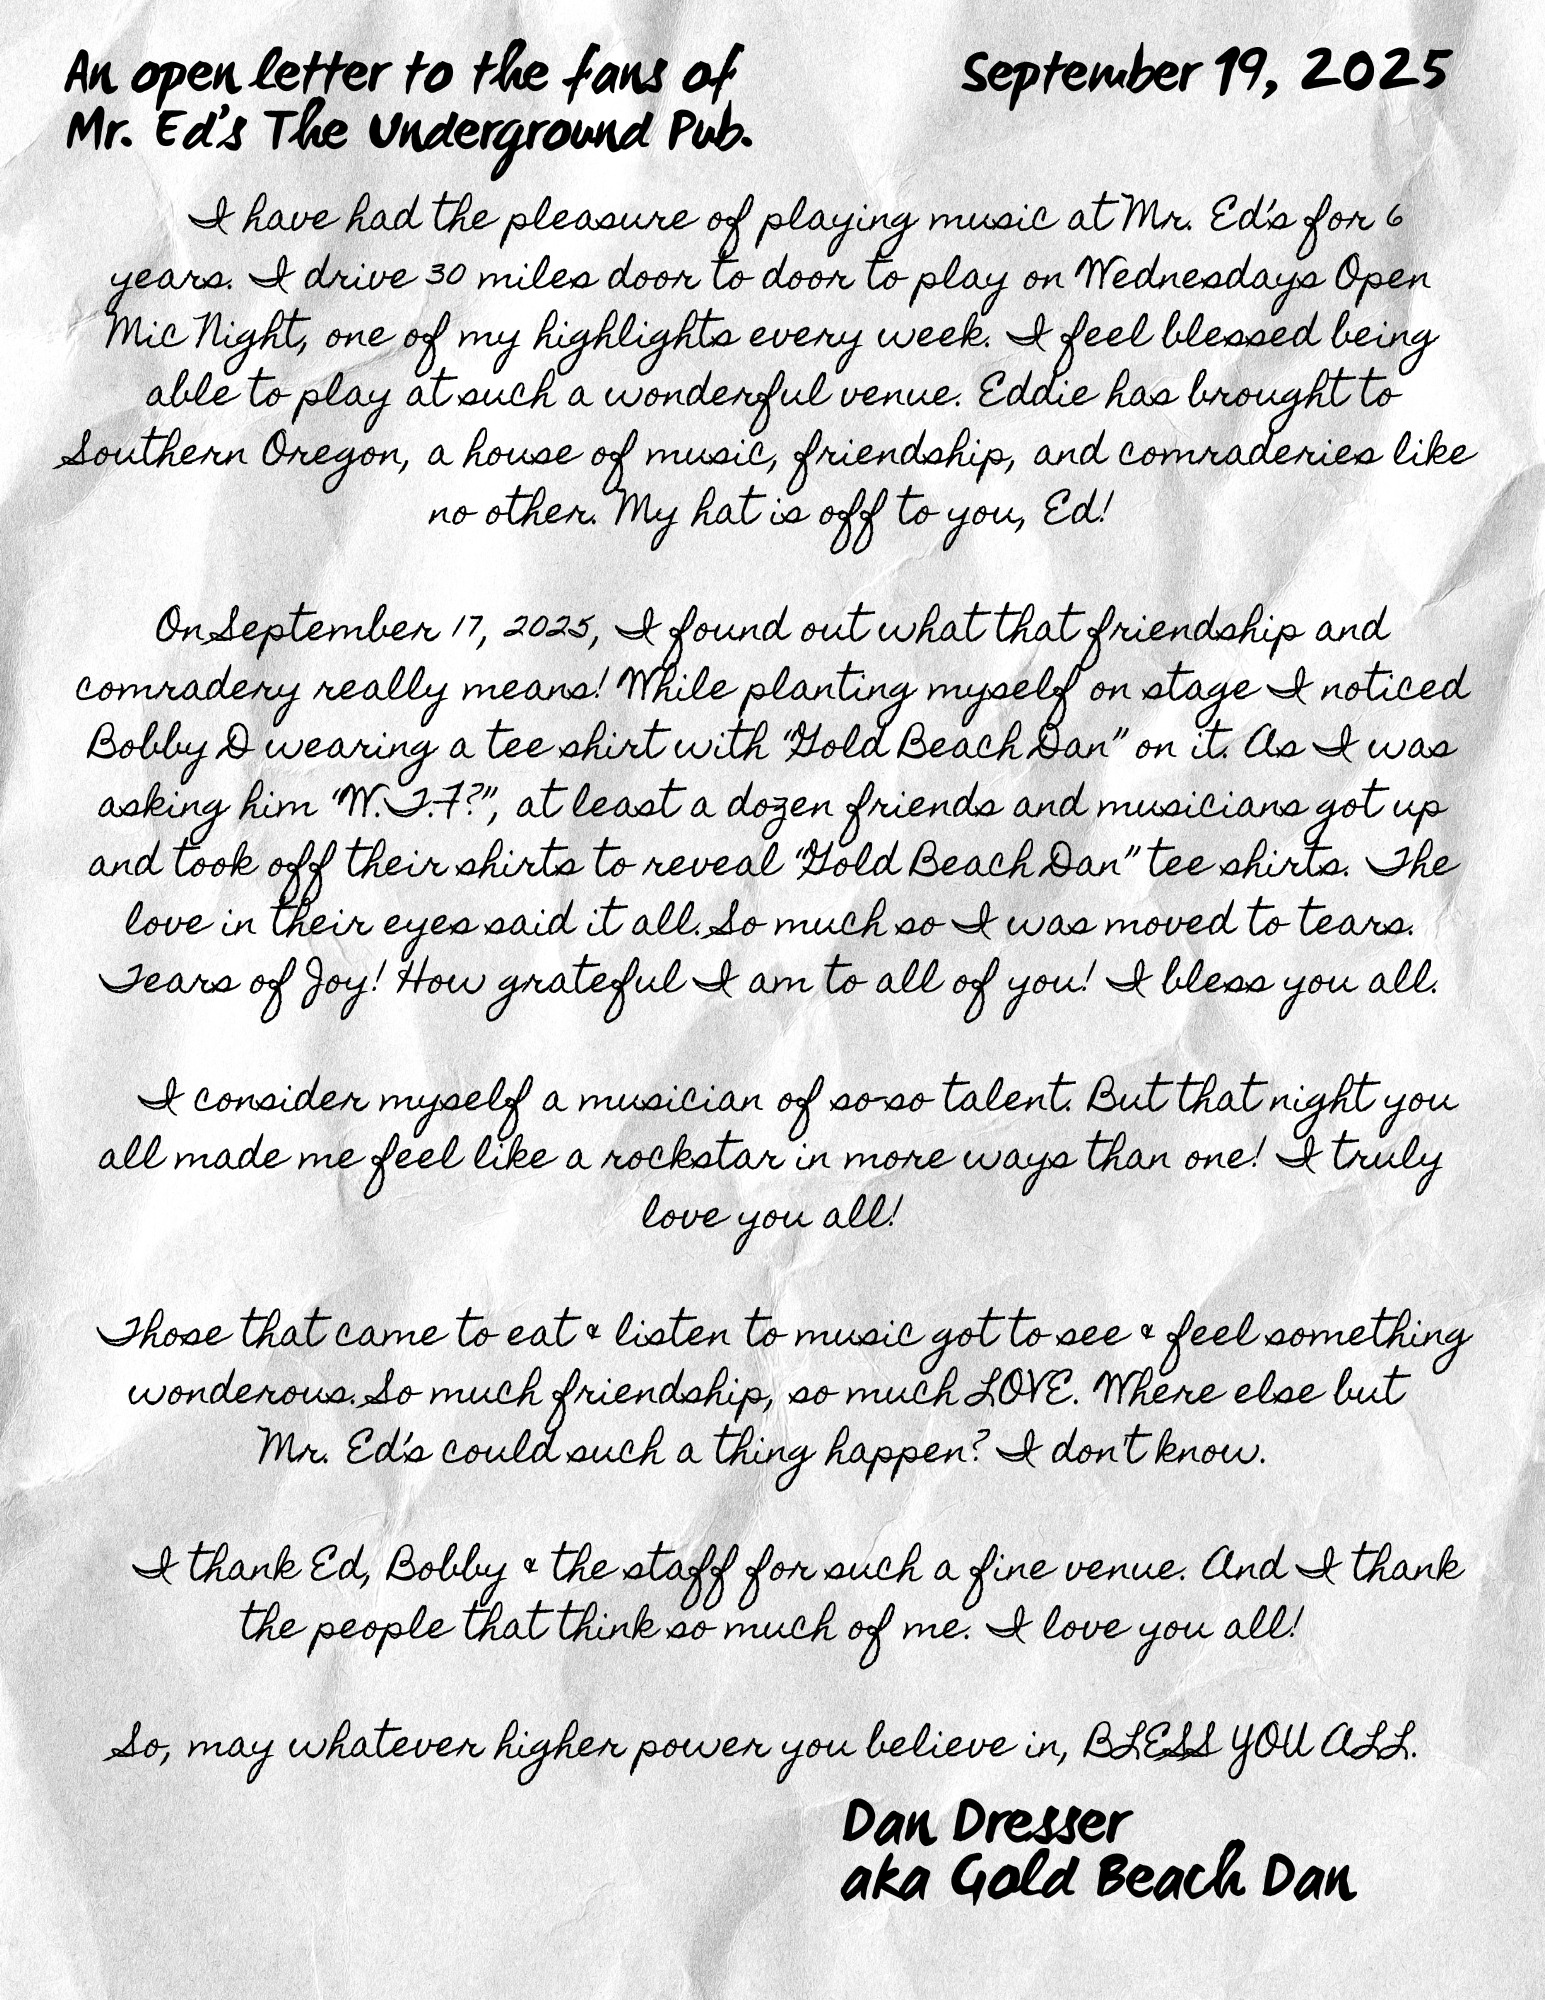 An open letter to the fans of
Mr. Ed's The Underground Pub.
September 19, 2025
I have had the pleasure of playing music at Mr. Ed's for 6
years. I drive 30 miles door to door to play on Wednesdays Open
Mic Night, one of my highlights every week. I feel blessed being
able to play at such a wonderful venue. Eddie has brought to
Southern Oregon, a house of music, friendship, and comraderies like
no other. My hat is off to you, Ed!
On September 17, 2025, I found out what that friendship and
comradery really means! While planting myself on stage I noticed
Bobby D wearing a tee shirt with "Gold Beach Dan" on it. As I was
asking him "W.T.F?", at least a dozen friends and musicians got up
and took off their shirts to reveal "Gold Beach Dan" tee shirts. The
love in their eyes said it all. So much so I was moved to tears.
Tears of Joy! How grateful I am to all of you! I bless you all.
I consider myself a musician of so-so talent. But that night you
all made me feel like a rockstar in more ways than one! I truly
love you all!
Those that came to eat & listen to music got to see & feel something
wonderous. So much friendship, so much LOVE. Where else but
Mr. Ed's could such a thing happen? I don't know.
I thank Ed, Bobby & the staff for such a fine venue. And I thank
the people that think so much of me. I love you all!
So, may whatever higher power you believe in, BLESS YOU ALL.
Dan Dresser
aka Gold Beach Dan